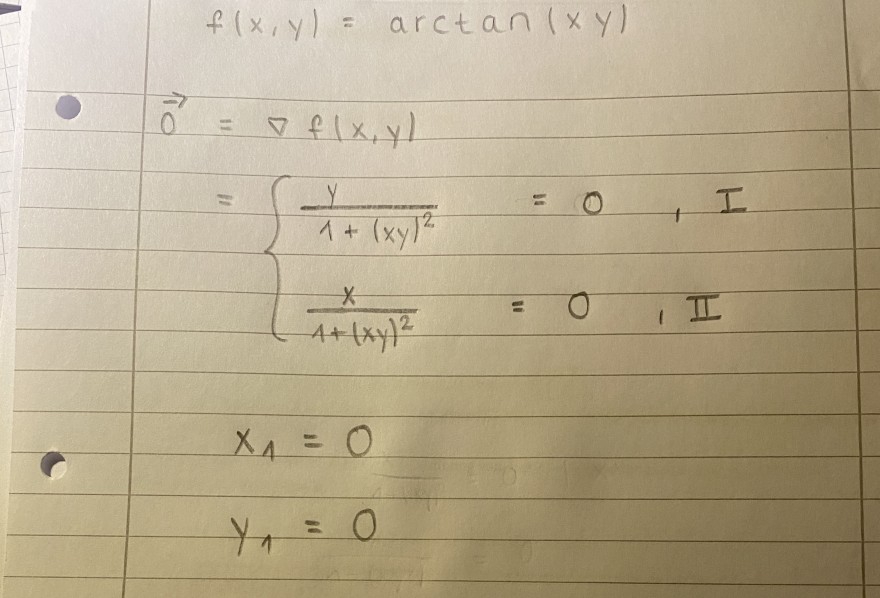 f(x,y) = arctan(xy)
→0 = ∇ f(x,y)
= { y / (1 + (xy)²) = 0 , I
x / (1 + (xy)²) = 0 , II
x₁ = 0
y₁ = 0